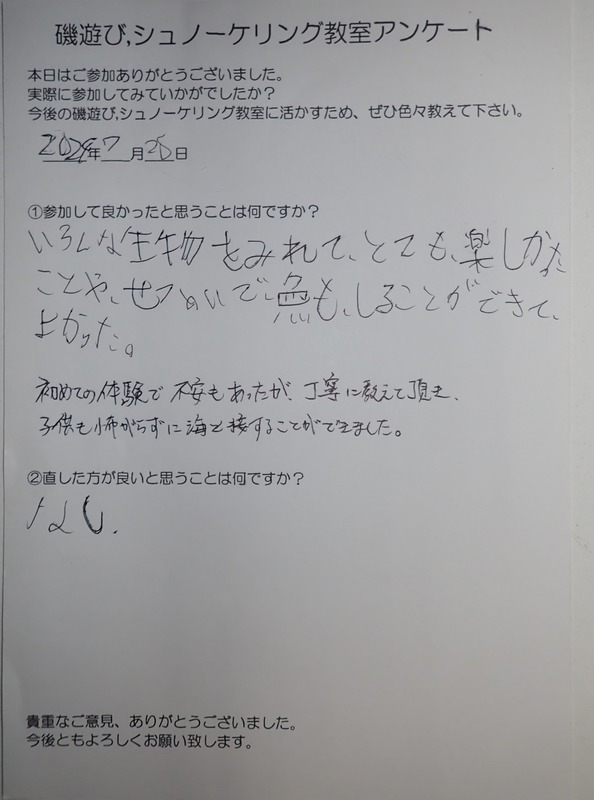 磯遊び,シュノーケリング教室アンケート
本日はご参加ありがとうございました。
実際に参加してみていかがでしたか？
今後の磯遊び,シュノーケリング教室に活かすため、ぜひ色々教えて下さい。
2024年7月25日
①参加して良かったと思うことは何ですか？
いろんな生物をみれて、とても、楽しかった
ことや、せつめいで、魚も、しることができて、
よかった。
初めての体験で不安もあったが、丁寧に教えて頂き、
子供も怖がらずに海と接することができました。
②直した方が良いと思うことは何ですか？
なし.
貴重なご意見、ありがとうございました。
今後ともよろしくお願い致します。